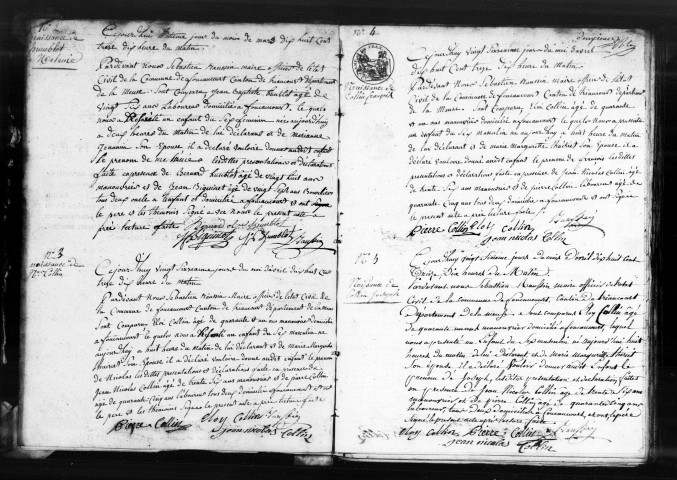 naissance de
humblot
Cejourdhui jour du mois de mars dix huit cent
treize dix heure du matin
Pardevant Nous Sebastien maire officier de letat
Civil de la Commune de foucaucourt Canton de triaucourt Departement
de la Meuse Sont Comparu Jean Baptiste humblot âgé de
Vingt Six ans Laboureur domicilié a foucaucourt le quel
nous a Présenté un enfant du Sexe féminin née aujourdhuy
a deux heures du Matin de lui déclarant et de marianne
Son Epouse il a déclaré vouloire donner audit enfant
le prenom de les dittes presentations et déclarations
faite en presence de Bernard humblot âgé de vingt huit ans
manouvrier et de Jean Biguinet âgé de vingt Sept ans
tous deux oncle a l'enfant domicilié a foucaucourt et ont Signé
le pere et les themoins Signé avec nous le present acte
pres lecture faite Bernard humblot
Biguinet J B humblot
n° 3
naissance de
Nas Collin
Cejourdhuy vingt Sixieme jour du moi Davril dix huit cent
treize dix heure du matin
Pardevant Nous Sebastien Maire officier de letat Civil de
la Commune de foucaucourt Canton de triaucourt departement de la Meuse
Sont Comparu Eloi Collin âgé de quarante et un ans manouvrier domicilié
a foucaucourt le quel nous a Présenté un enfant du Sexe masculin né
aujourdhuy a huit heure du matin de lui déclarant et de Marie Margueritte
Son Epouse il a déclaré vouloire donné audit enfant le prenom
de Nicolas les dittes presentations et déclarations faite en presence de
Jean Nicolas Collin âgé de trente Six ans manouvrier et de pierre Collin
âgé de quarante Cinq ans Laboureur tous deux domicilié a foucaucourt et ont
le pere et les themoins Signé le present acte apres lecture faite
Pierre Collin Eloy Collin
Jean nicolas Collin
n° 4
Naissance de
Collin françois
Cejourdhuy vingt Sixieme jour du moi davril
dix huit Cent treize dix heure du matin
Pardevant Nous Sebastien maire officier de letat
Civil de la Commune de foucaucourt Canton de triaucourt departement
de la Meuse Sont Comparu Eloi Collin âgé de quarante
et un ans manouvrier domicilié a foucaucourt le quel Nous a presenté
un enfant du Sexe Masculin né aujourdhuy a huit heure du matin
de lui déclarant et de marie Margueritte Son Epouse il a
déclaré vouloire donné audit enfant le prenom de françois les dittes
presentations et déclarations faite en presence de Jean Nicolas Collin âgé
de trente Six ans manouvrier et de pierre Collin Laboureur âgé de quarante
Cinq ans tous deux domicilié a foucaucourt et ont Signé
le present acte apres lecture faite
Pierre Collin Eloy Collin
Jean nicolas Collin
n° 5
Naissance de
Collin Joseph
Cejourdhuy vingt Sixieme jour du mois D'avril dix huit cent
treize Dix heures du Matin
Pardevant nous Sebastien maire officier de l'etat
Civil de la Commune de foucaucourt, Canton de triaucourt
Departement de la Meuse a Sont Comparu Eloy Collin âgé
de quarante un ans manouvrier domicilié a foucaucourt, lequel
nous a presenté un Enfant du Sexe masculin né aujourd'hui a huit
heures du matin de lui Declarant et de Marie Margueritte
Son Epouse il a declaré Vouloir donner audit Enfant le
prenom de Joseph, lesdites presentation et declaration faites
en presence de Jean Nicolas Collin âgé de trente Six ans
manouvrier et de pierre Collin âgé de quarante Cinq ans
laboureur, tous deux domiciliés a foucaucourt,
Signé le present acte apres lecture faite
Eloy Collin Pierre Collin
Jean nicolas Collin